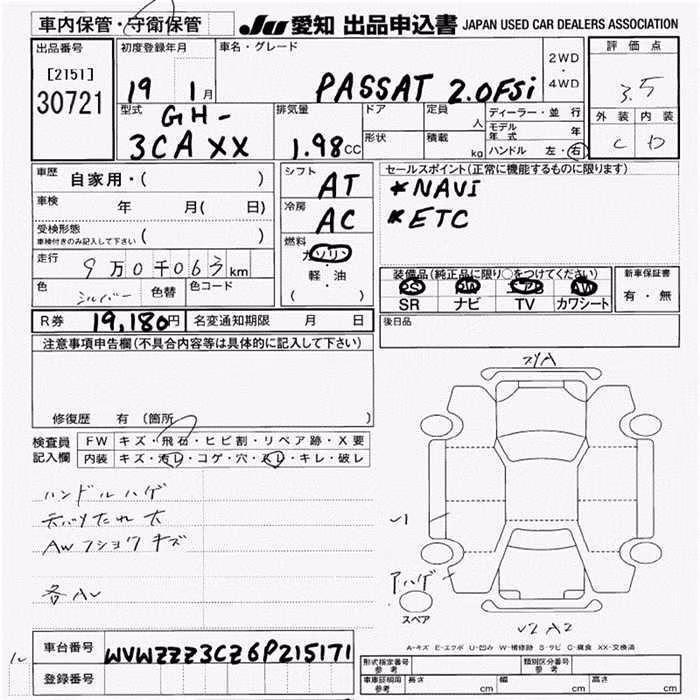 車内保管・守衛保管
JU 愛知 出品申込書 JAPAN USED CAR DEALERS ASSOCIATION
出品番号
[2151]
30721
初度登録年月
19 1月
車名・グレード
PASSAT 2.0FSi
2WD
・
4WD
評価点
3.5
外装 内装
C D
型式
GH-
3CAXX
排気量
1.98cc
ドア
形状
定員 人
積載 kg
ディーラー・並行
モデル年式 年
ハンドル 左・右
車歴 自家用・( )
車検 年 月( 日)
受検形態
車検付きのみ記入して下さい ( )
走行 9万0千063km
色 シルバー 色替 色コード
シフト AT
冷房 AC
燃料
ガソリン
・
軽油
( )
セールスポイント(正常に機能するものに限ります)
*NAVI
*ETC
装備品(純正品に限り○をつけてください)
PS PW AW
SR ナビ TV カワシート
新車保証書
有・無
R券 19,180円 名変通知期限 月 日
後日品
注意事項申告欄(不具合内容等は具体的に記入して下さい)
修復歴 有(箇所 )
検査員
記入欄
FW キズ・飛石・ヒビ割・リペア跡・X要
内装 キズ・汚レ・コゲ・穴・スレ・キレ・破レ
ハンドルハゲ
天バリたれ大
AWフショクキズ
各AU
アハゲ
スペア
A-キズ E-エクボ U-凹み W-補修跡 S-サビ C-腐食 XX-交換済
車台番号 WVWZZZ3CZ6P215171
登録番号
形式指定番号
参考
類別区分番号
参考
車庫証明用
参考
長さ cm 幅 cm 高さ cm